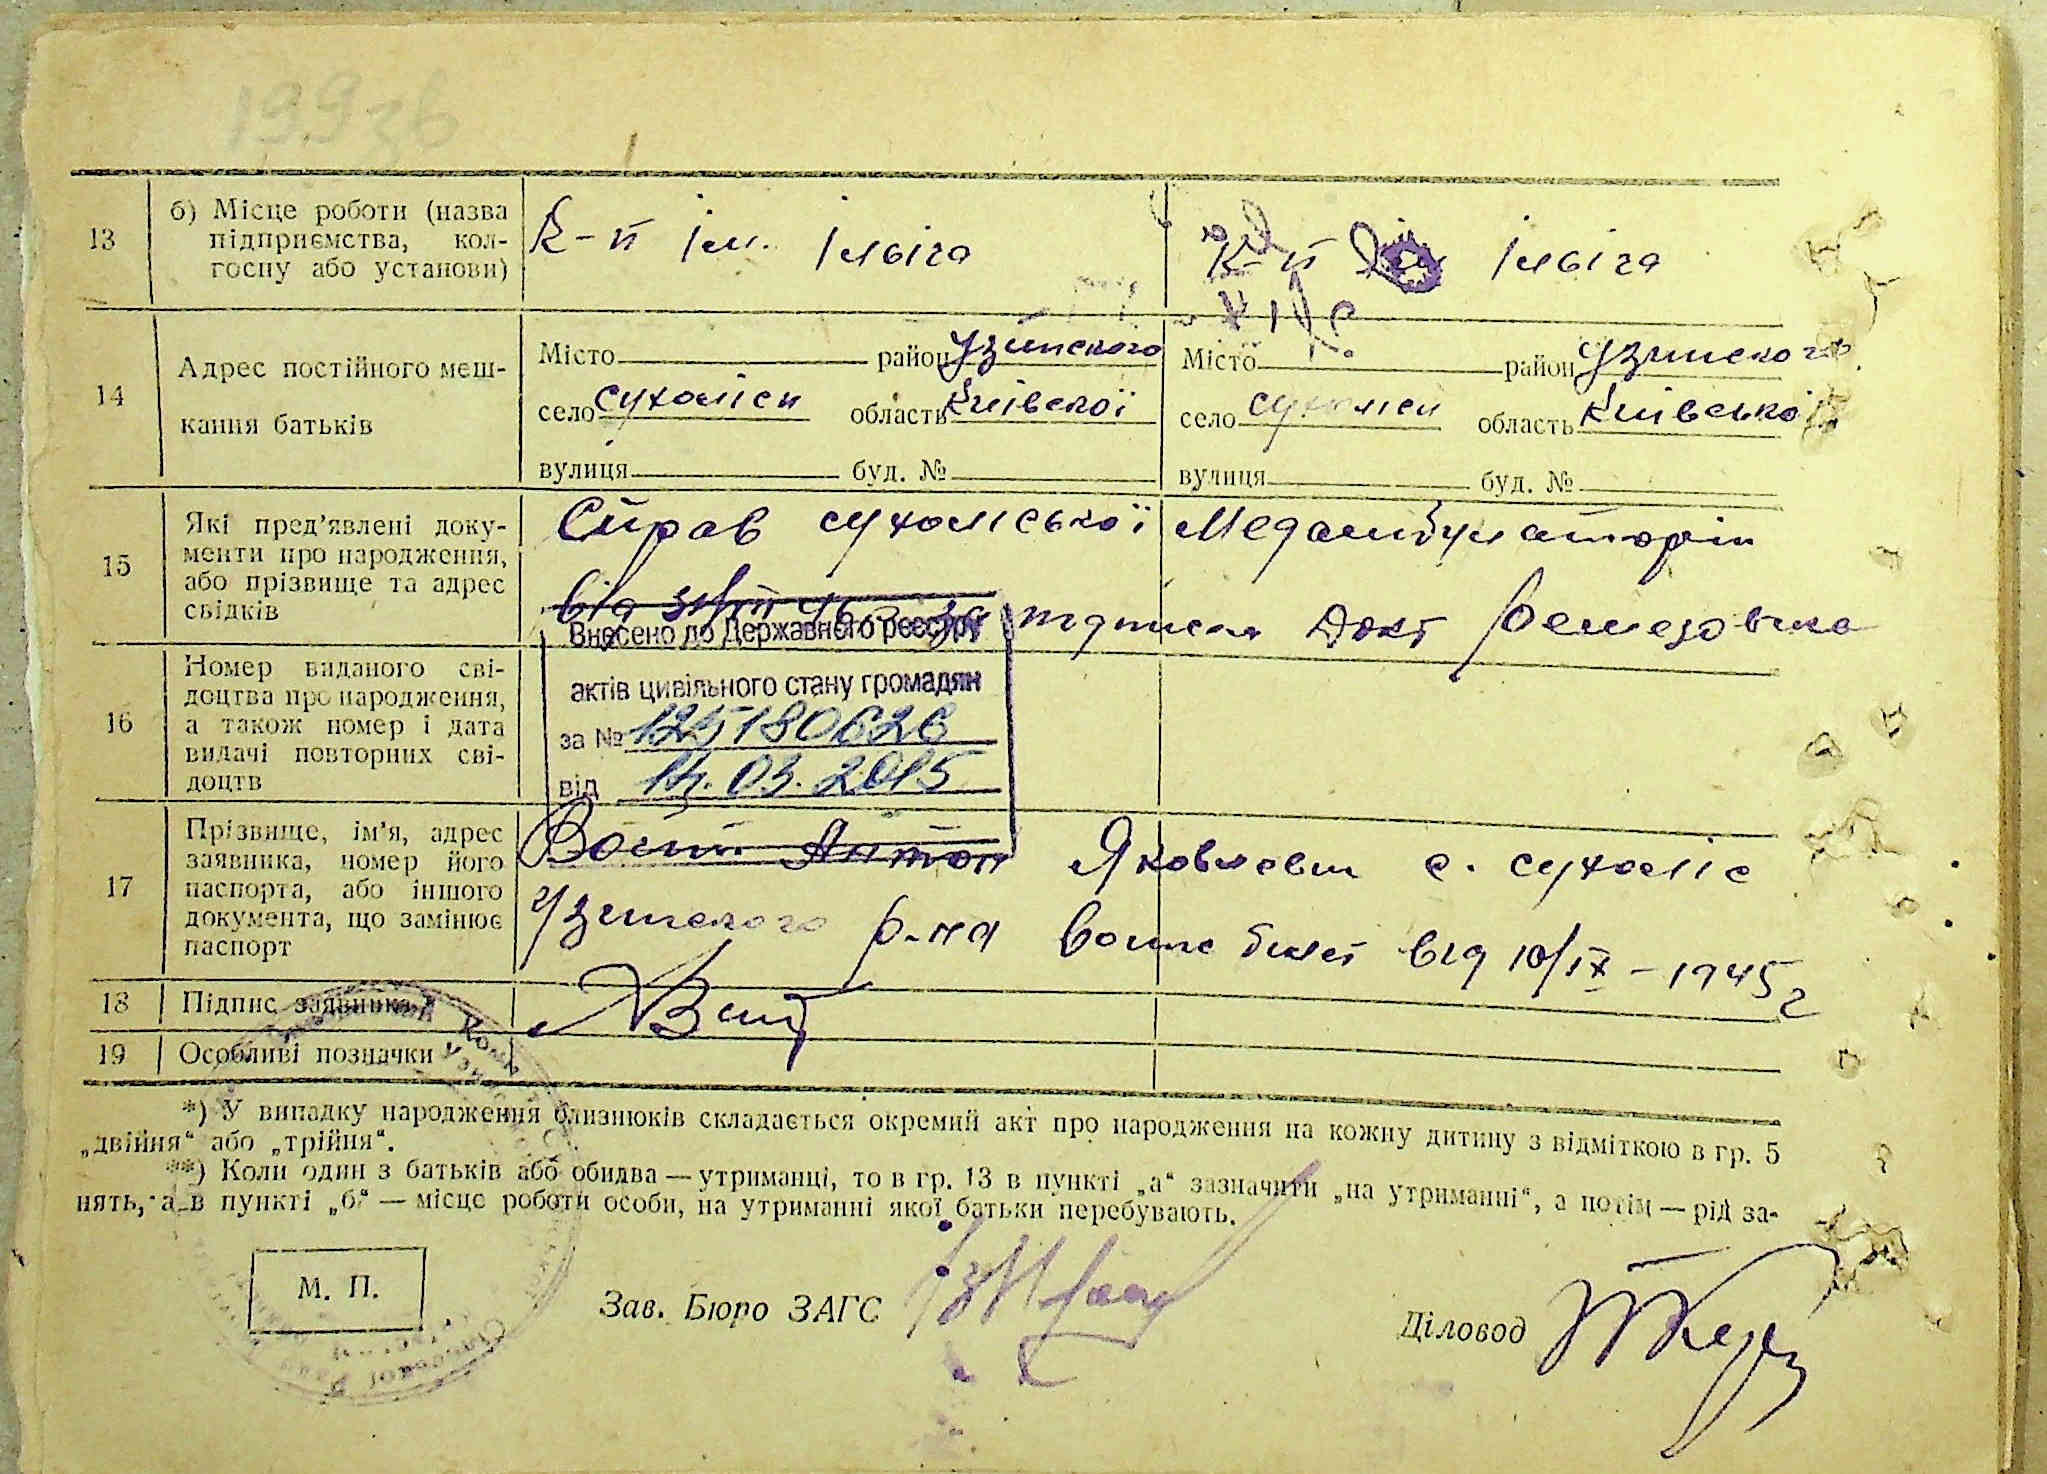 199зв
13 б) Місце роботи (назва
підприємства, кол-
госпу або установи)
К-п ім. Ілвіга
К-п Ілвіга
14 Адрес постійного меш-
кання батьків
Місто район Узинского
село сухоліси область Київскої
вулиця буд. №
Місто район Узинского
село сухоліси область Київської
вулиця буд. №
15 Які пред’явлені доку-
менти про народження,
або прізвище та адрес
свідків
Справ сухоліської Медамбулаторіи
від підписал Докт
16 Номер виданого сві-
доцтва про народження,
а також номер і дата
видачі повторних сві-
доцтв
Внесено до Державного реєстру
актів цивільного стану громадян
за № 125180626
від 14.03.2015
17 Прізвище, ім’я, адрес
заявника, номер його
паспорта, або іншого
документа, що замінює
паспорт
Антон Яковлевич с. сухоліс
Узинского р-на билет від 10/ІХ - 1945 г
18 Підпис заявника
19 Особливі позначки
*) У випадку народження близнюків складається окремий акт про народження на кожну дитину з відміткою в гр. 5
„двійня“ або „трійня“.
**) Коли один з батьків або обидва — утриманці, то в гр. 13 в пункті „а“ зазначити „на утриманні“, а потім — рід за-
нять, а в пункті „б“ — місце роботи особи, на утриманні якої батьки перебувають.
М. П.
Зав. Бюро ЗАГС
Діловод